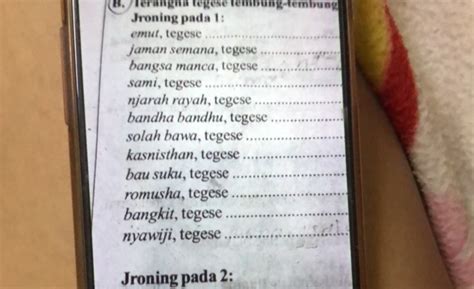 B. Terangna tegese tembung-tembung
Jroning pada 1:
emut, tegese ..................
jaman semana, tegese ..................
bangsa manca, tegese ..................
sami, tegese ..................
njarah rayah, tegese ..................
bandha bandhu, tegese ..................
solah bawa, tegese ..................
kasnisthan, tegese ..................
bau suku, tegese ..................
romusha, tegese ..................
bangkit, tegese ..................
nyawiji, tegese ..................
Jroning pada 2: